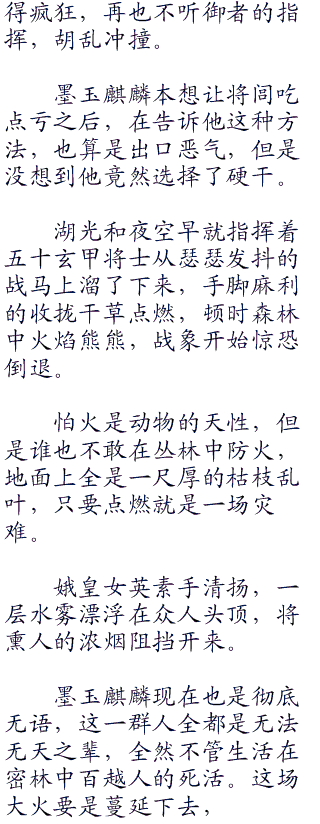 得疯狂，再也不听御者的指
挥，胡乱冲撞。
墨玉麒麟本想让将闾吃
点亏之后，在告诉他这种方
法，也算是出口恶气，但是
没想到他竟然选择了硬干。
湖光和夜空早就指挥着
五十玄甲将士从瑟瑟发抖的
战马上溜了下来，手脚麻利
的收拢干草点燃，顿时森林
中火焰熊熊，战象开始惊恐
倒退。
怕火是动物的天性，但
是谁也不敢在丛林中防火，
地面上全是一尺厚的枯枝乱
叶，只要点燃就是一场灾
难。
娥皇女英素手清扬，一
层水雾漂浮在众人头顶，将
熏人的浓烟阻挡开来。
墨玉麒麟现在也是彻底
无语，这一群人全都是无法
无天之辈，全然不管生活在
密林中百越人的死活。这场
大火要是蔓延下去，